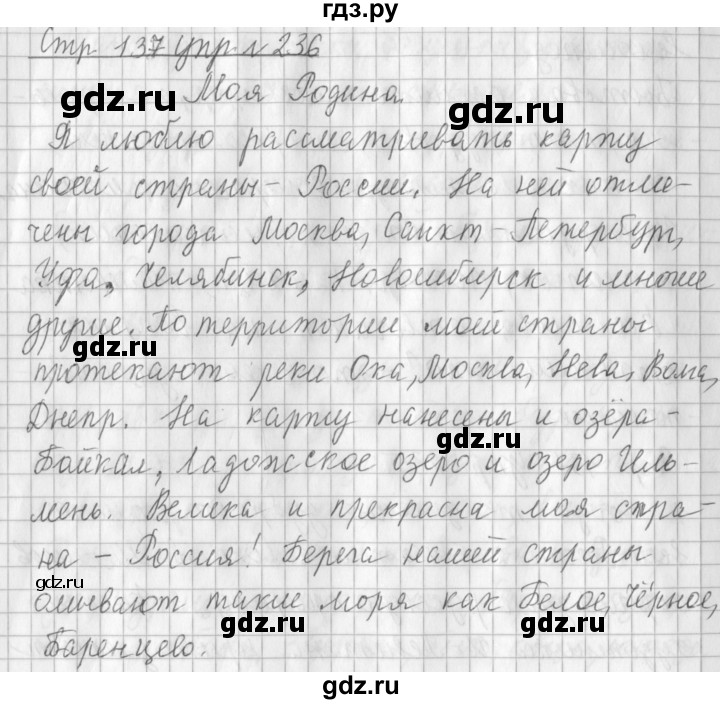 гдз.ру
Стр 137 упр №236
gdz.ru
gdz.ru
Моя Родина.
Я люблю рассматривать карту
своей страны - России. На ней отме-
чены города Москва, Санкт-Петербург,
gdz.ru
Уфа, Челябинск, Новосибирск и многие
другие. По территории моей страны
gdz.ru
протекают реки Ока, Москва, Нева, Волга,
Днепр. На карту нанесены и озёра -
gdz.ru
Байкал, Ладожское озеро и озеро Иль-
мень. Велика и прекрасна моя стра-
на - Россия! Берега нашей страны
gdz.ru
омывают такие моря как Белое, Чёрное,
gdz.ru
gdz.ru
Баренцево.
gdz.ru